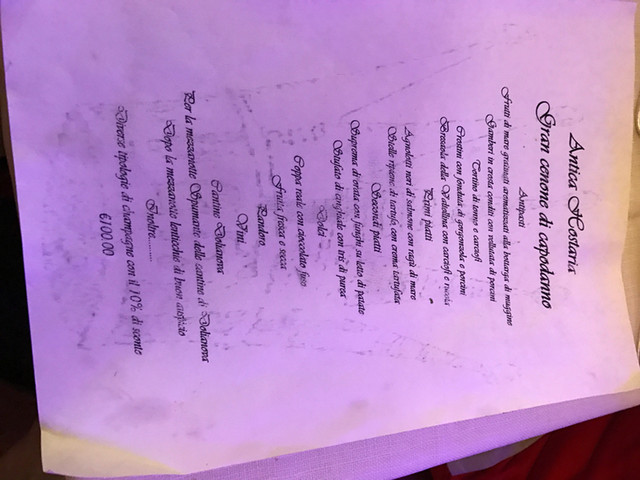 Antica Hostaria
Gran cenone di capodanno
Antipasti
Frutti di mare gratinati aromatizzati alla bottarga di muggine
Gamberi in crosta conditi con vellutata di porcini
Tortino di tonno e carciofi
Crostini con fonduta di gorgonzola e porcini
Bresaola della Valtellina con carciofi e rucola
Primi piatti
Agnolotti neri di salmone con ragù di mare
Stelle ripiene di tartufo con crema tartufata
Secondi piatti
Suprema di orata con funghi su letto di patate
Stufato di cinghiale con tris di purea
Dolci
Coppa reale con cioccolato fuso
Frutta fresca e secca
Pandoro
Vini
Cantina Dolianova
Per la mezzanotte Spumante delle cantine di Dolianova
Dopo la mezzanotte lenticchie di buon auspicio
Inoltre.........
Diverse tipologie di champagne con il 10% di sconto
€100.00